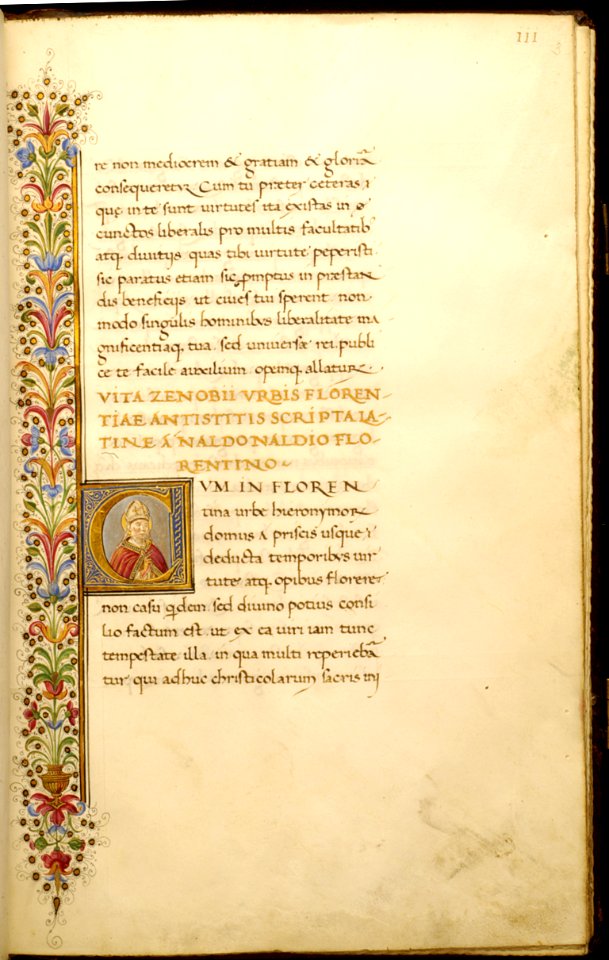 III
re non mediocrem & gratiam & gloriā
consequeretur. Cum tu præter ceteras,
quę in te sunt uirtutes ita existas in
cunctos liberalis pro multis facultatib
atq. diuitijs quas tibi uirtute peperisti
sic paratus etiam sic promptus in præstan
dis beneficijs ut ciues tui sperent non
modo singulis hominibus liberalitate ma
gnificentiaq. tua, sed uniuersæ rei publi
cę te facile auxilium opemq. allaturum.
VITA ZENOBII VRBIS FLOREN-
TIAE ANTISTITIS SCRIPTA LA-
TINE A NALDO NALDIO FLO-
RENTINO
CVM IN FLOREN
tina urbe hieronymor
domus a priscis usque
deducta temporibus uir
tute atq. opibus floreret
non casu qdem sed diuino potius consi
lio factum est ut ex ea uiri iam tunc
tempestate illa, in qua multi reperiebā
tur qui adhuc christicolarum sacris ini